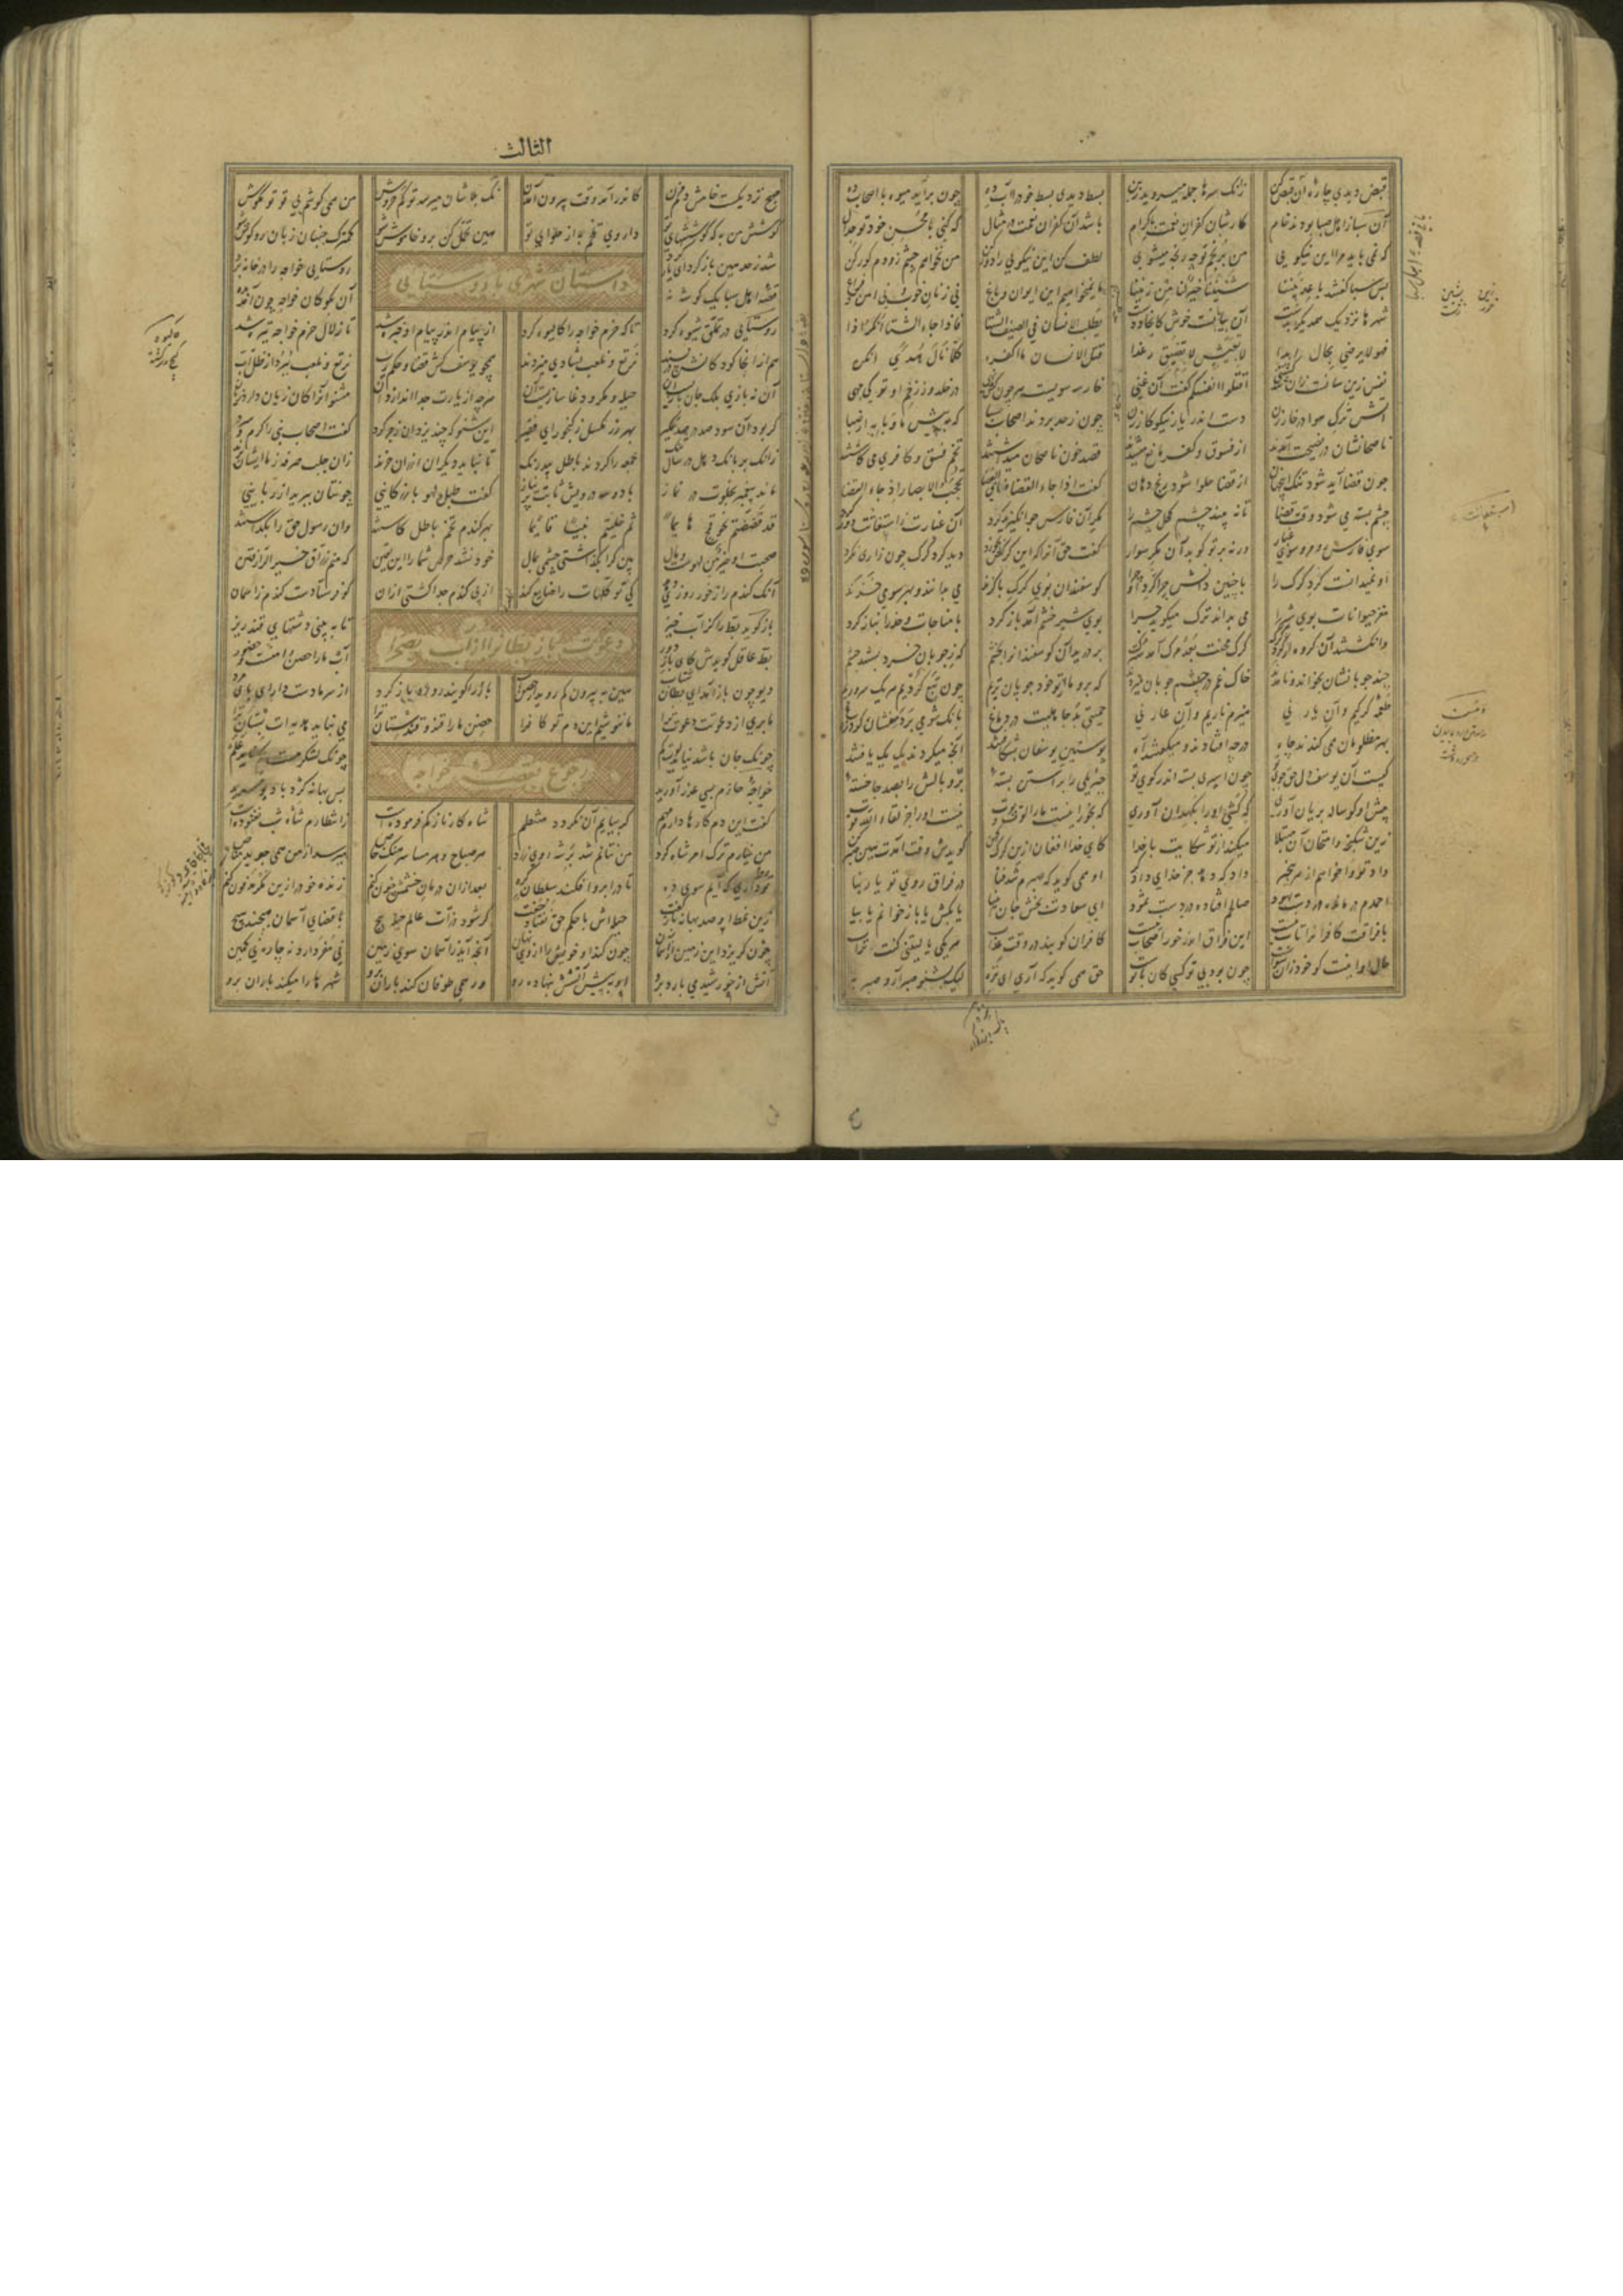 قبض دیدی چاره آن قبض کن زانک سرها جمله میروید ز بن بسط دیدی بسط خود را آب ده چون برآید میوه با اصحاب ده
آن سبا ز اهل صبا بودند خام کارشان کفران نعمت با کرام باشد آن کفران نعمت در مثال که کنی با محسن خود تو جدال
که نمی باید مرا این نیکویی من برنجم چه رنجه میشوی لطف کن این نیکویی را دور کن من نخواهم چشم زودم کور کن
پس سبا گفتند باعد بیننا شیننا خیر لنا من زیننا ما نمیخواهیم این ایوان و باغ نی زنان خوب و نی امن و فراغ
شهرها نزدیک همدیگر بدست آن بیابانست خوش کانجا ددست یطلب الانسان فی الصیف الشتا فاذا جاء الشتا انکر ذا
فهو لا یرضی بحال ابدا لا بعیش لا بضیق رغدا قتل الانسان ما اکفره کلما نال هدی انکره
نفس زین سانست زان شد کشتنی اقتلوا انفسکم گفت آن سنی خار سه سویست هر چون کش نهی در خلد وز زخم او تو کی جهی
آتش ترک هوا در خار زن دست اندر یار نیکوکار زن چون ز حد بردند اصحاب سبا که بپیش ما وبا به از صبا
ناصحانشان در نصیحت آمدند از فسوق و کفر مانع میشدند قصد خون ناصحان میداشتند تخم فسق و کافری می کاشتند
چون قضا آید شود تنگ این جهان از قضا حلوا شود رنج دهان گفت اذا جاء القضا ضاق الفضا تحجب الابصار اذ جاء القضا
چشم بسته می شود وقت قضا تا نبیند چشم کحل چشم را مکر آن فارس چو انگیزید گرد آن غبارت ز استغاثت دور کرد
سوی فارس رو مرو سوی غبار ورنه بر تو کوبد آن مکر سوار گفت حق آنرا که این گرگش بخورد دید گرد گرگ چون زاری نکرد
او نمیدانست گرد گرگ را با چنین دانش چرا کرد او چرا گوسفندان بوی گرگ با گزند می بدانند و بهر سو می خزند
مغز حیوانات بوی شیر را می بداند ترک میگوید چرا بوی شیر خشم آمد باز گرد با مناجات و حذر انباز گرد
وانگشتند آن گروه از گرد گرگ گرگ محنت بعد گرد آمد سترگ بر درید آن گوسفندانرا بخشم که ز چوپان خرد بستند چشم
چند چوپانشان بخواند و نامدند خاک غم در چشم چوپان میزدند که برو ما از تو خود چوپان تریم چون تبع گردیم هر یک سروریم
طعمه گرگیم و آن یار نی هیزم ناریم و آن عار نی حمیتی بد جاهلیت در دماغ بانگ شومی بر دمنشان کرد زاغ
بهر مظلومان می کندند چاه در چه افتادند و میگفتند آه پوستین یوسفان بشکافتند آنچ میکردند یک یک یافتند
کیست آن یوسف دل حق جوی تو چون اسیری بسته اندر کوی تو جبرئیلی را بر استن بسته پر و بالش را بصد جا خسته
پیش او گوساله بریان آوری که کشی او را بکهدان آوری که بخور اینست ما را لوت و پوت نیست او را جز لقاء الله قوت
زین شکنجه و امتحان آن مبتلا میکند از تو شکایت با خدا کای خدا افغان ازین گرگ کهن گویدش وقت آمدت هین صبر کن
داد تو وا خواهم از هر بی خبر داد که دهد جز خدای دادگر او همی گوید که صبرم شد فنا در فراق روی تو یا ربنا
احمدم در مانده در دست یهود صالحم افتاده در دست ثمود ای سعادت بخش جان انبیا یا بکش یا باز خوانم یا بیا
با فراقت کافرانرا تاب نیست این فراق اندر خور اصحاب نیست کافران گویند در وقت عذاب هر یکی یا لیتنی کنت تراب
حال او اینست کو خود زان سوست چون بود بی تو کسی کان تو است حق همی گوید که آری ای نزه لیک بشنو صبر آر و صبر به
الثالث
صبح نزدیکست خامش دم مزن کاندر آمد وقت بیرون آمدن نک بلاشان میرسد تو کم خروش من همی کوشم پی تو تو مکوش
کوشش من به که کوششهای تو داروی تلخم به از حلوای تو هین تحمل کن برو خاموش شو کمترک جنبان زبان رو گوش شو
داستان شهری با روستایی
شد ز حد هین باز گرد ای یار گرد روستایی خواجه را در خانه برد
قصه اهل سبا یک گوشه نه آن بگو کان خواجه چون آمد بده
روستایی در تملق شیوه کرد تا که حزم خواجه را کالیوه کرد از پیام اندر پیام او خیره شد تا زلال حزم خواجه تیره شد
هم از اینجا کودکانش در پسند نرتع و نلعب بشادی میزدند همچو یوسف کش قضا و حکم رب نرتع و نلعب ببرد از ظل آب
آن نه بازی بلک جان بازیست آن حیله و مکر و دغا سازیست آن هرچه از یارت جدا اندازد آن مشنو آنرا کان زیان دارد زیان
گر بود آن سود صد در صد مگیر بهر زر مگسل ز گنجور ای فقیر این شنو که چند یزدان زجر کرد گفت اصحاب نبی را گرم و سرد
زانک بر بانگ دهل در سال تنگ جمعه را کردند باطل بیدرنگ تا نباید دیگران ارزان خرند زان جلب صرفه ز ما ایشان برند
ماند پیغمبر بخلوت در نماز با دو سه درویش ثابت پر نیاز گفت طبل لهو بازرگانیی چونتان ببرید از ربانیی
قد فضضتم نحو قمح هایما ثم خلیتم نبیا قایما بهر گندم تخم باطل کاشتند وان رسول حق را بگذاشتند
صحبت او خیر من لهوست و مال بین کرا بگذاشتی چشمی بمال خود نشد حرص شما را این یقین که منم رزاق خیر الرازقین
آنک گندم را ز خود روزی دهد کی توکلهات را ضایع کند از پی گندم جدا گشتی از آن کو فرستادست گندم ز آسمان
دعوت باز بطانرا از آب بصحرا
باز گوید بط را کز آب خیز تا به بینی دشتهای قندریز
بط عاقل گویدش کای باز دور آب ما را حصن و امنست
دیو چون باز آمد ای بطان شتاب هین به بیرون کم روید از حصن آب باز را گویند رو رو باز گرد از سر ما دست دار ای پای مرد
ما بری از دعوتت دعوت ترا ما ننوشیم این دم تو کافرا حصن ما را قند و قندستان ترا می نباید هدیه ات بستان ترا
رجوع بقصه خواجه
چونک جان باشد نیاید لوت کم چونک لشکر هست کم ناید علم
خواجه حازم بسی عذر آورید بس بهانه کرد با دیو مرید
گفت این دم کارها دارم مهم گر بیایم آن نگردد منتظم شاه کار نازکم فرموده است ز انتظارم شاه شب نغنوده است
من نیارم ترک امر شاه کرد من نتانم شد بر شه روی زرد هر صباح و هر مسا سرهنگ خاص میرسد از من همی جوید مناص
تو روا داری که آیم سوی ده تا در ابرو افکند سلطان گره بعد ازان درمان خشمش چون کنم زنده خود را زین مگر مدفون کنم
زین نمط او صد بهانه باز گفت حیله اش با حکم حق نفتاد جفت گر شود ذرات عالم حیله پیچ با قضای آسمان هیچند هیچ
چون گریزد این زمین از آسمان چون کند او خویش را از وی نهان آنچه آید ز آسمان سوی زمین نی مفر دارد نه چاره نی کمین
آتش از خورشید می بارد برو او بپیش آتشش بنهاده رو ور همی طوفان کند باران برو شهرها را میکند باران برو